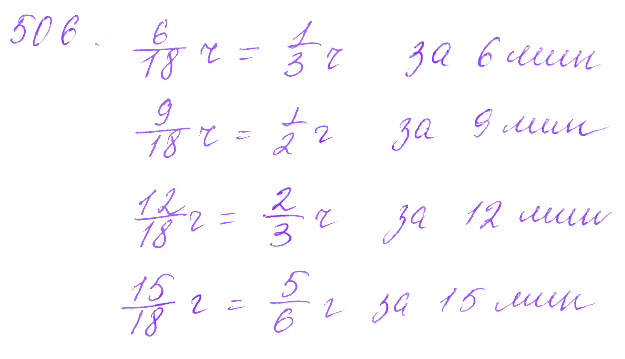 506. 6/18 ч = 1/3 ч за 6 мин
9/18 ч = 1/2 г за 9 мин
12/18 г = 2/3 ч за 12 мин
15/18 г = 5/6 г за 15 мин